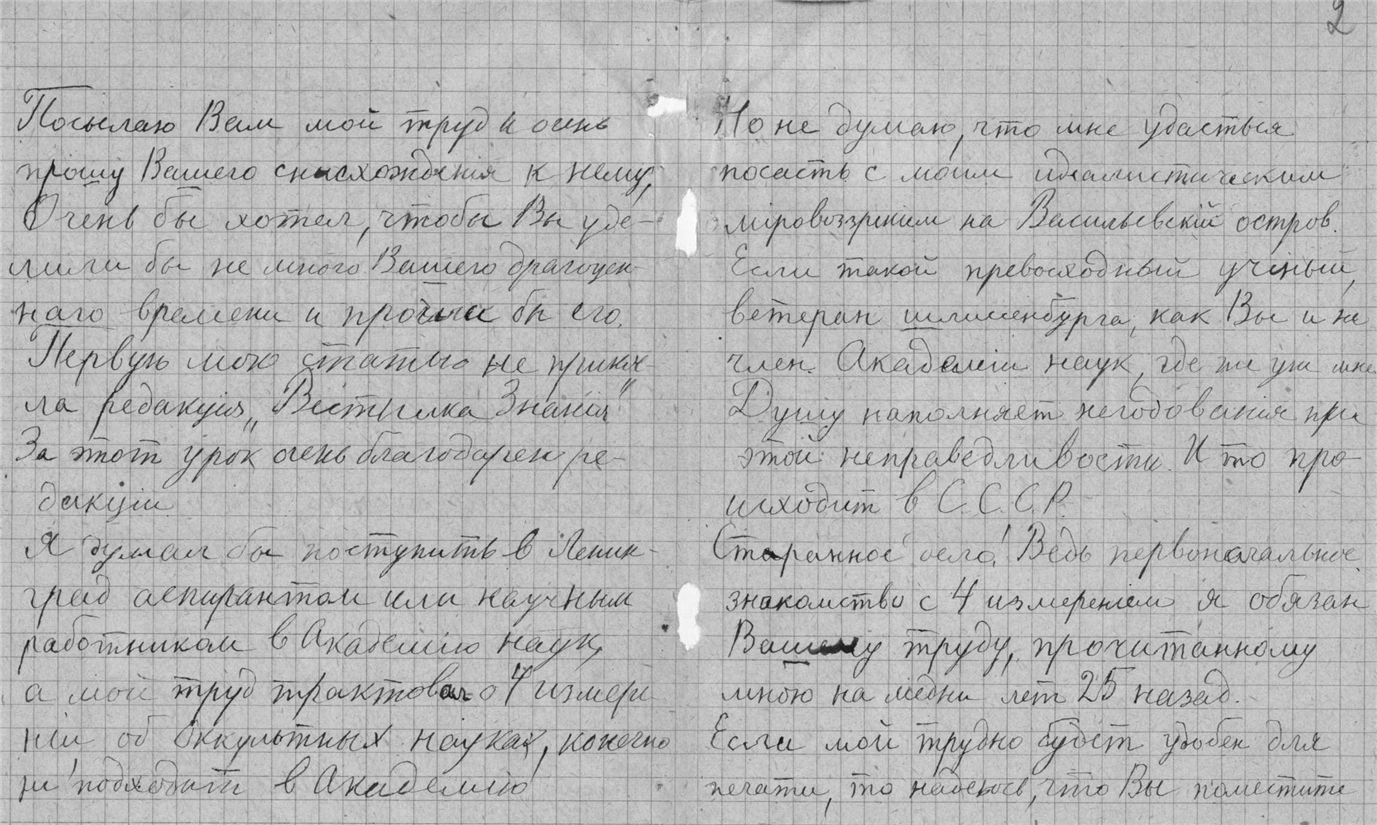 2
Посылаю Вам мой труд и очень
прошу Вашего снисхождения к нему,
Очень бы хотел, чтобы Вы уде-
лили бы не много Вашего драгоцен-
наго времени и прочли бы его.
Первую мою статью не приня-
ла редакция „Вестника Знания"
За этот урок очень благодарен ре-
дакции
Я думал бы поступить в Ленин-
град аспирантом или научным
работником в Академию наук,
а мой труд трактовал о 4 измере
нии об оккультных науках, конечно
не подходит в Академию
Но не думаю, что мне удасться
попасть с моим идеалистическим
мировоззрением на Васильевский остров.
Если такой превосходный учёный,
ветеран шлиссенбурга, как Вы и не
член Академии наук, где же уж мне
Душу наполняет негодования при
этой неправедливости. И то про-
исходит в С.С.С.Р.
Старанное дело! Ведь первоначальное
знакомство с 4 измерением я обязан
Вашему труду, прочитанному
мною на медни лет 25 назад.
Если мой трудно будет удобен для
печати, то надеюсь, что Вы поместите